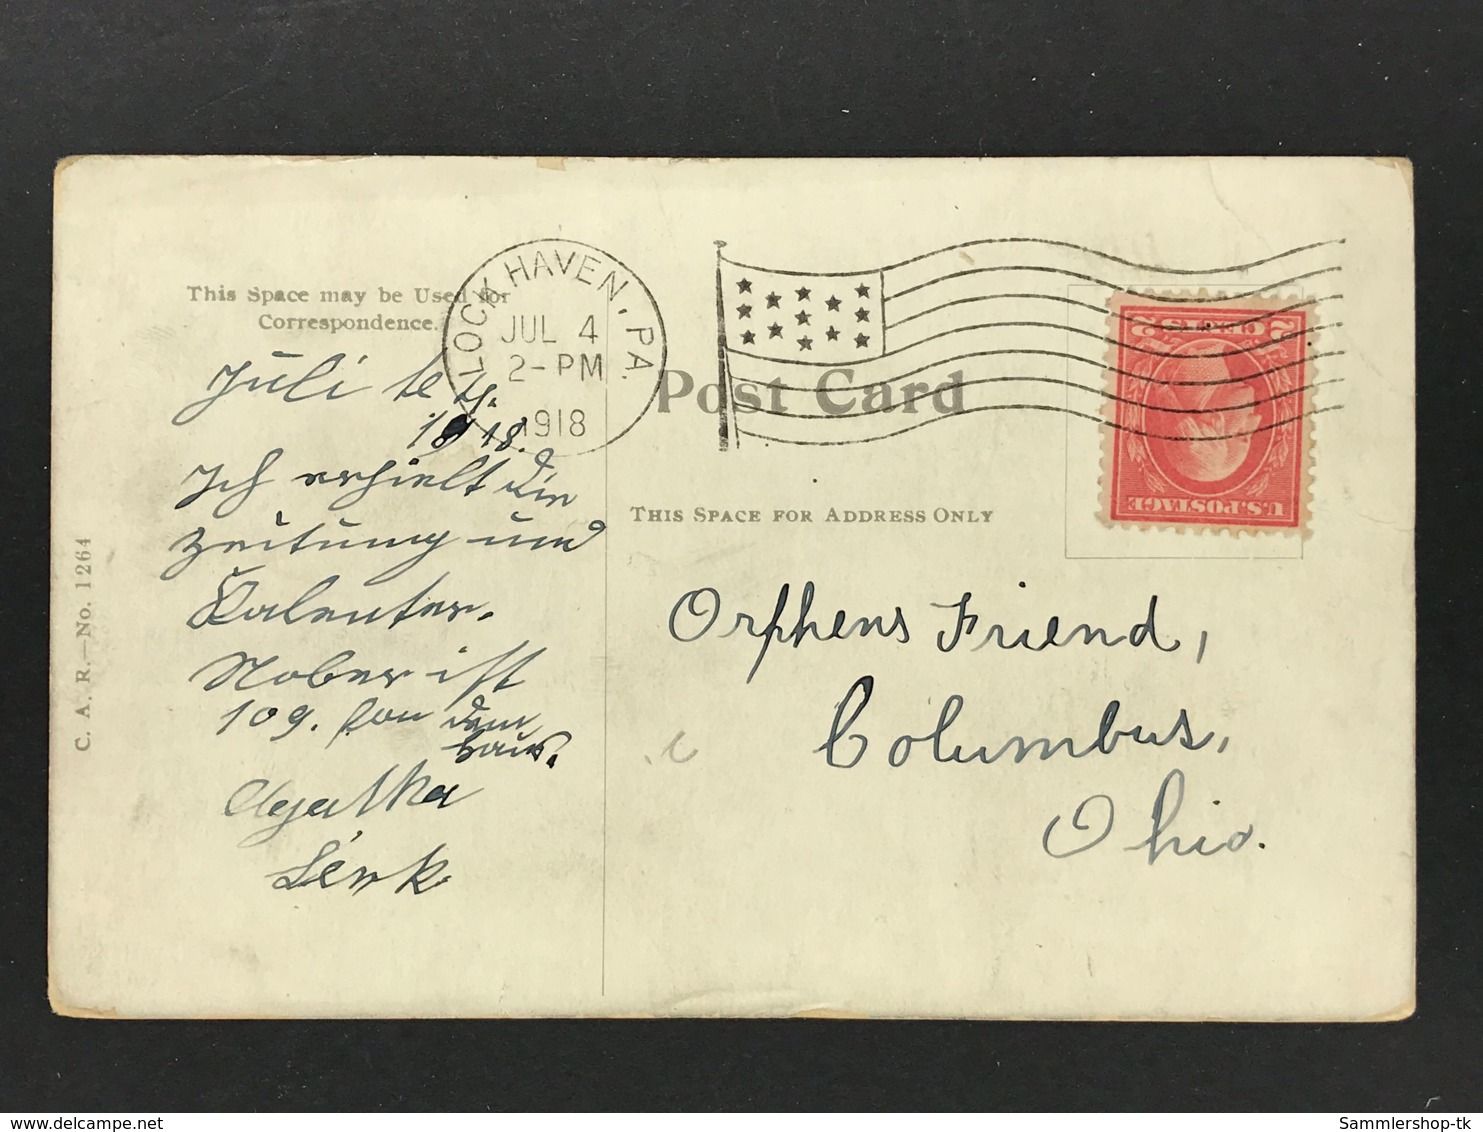 This Space may be Used for
Correspondence.
LOCK HAVEN, PA.
JUL 4
2-PM
1918
2 CENTS 2
U.S. POSTAGE
Post Card
THIS SPACE FOR ADDRESS ONLY
C. A. R.—No. 1264
Juli te 4.
1918.
Ich erhielt die
Zeitung und
Kalenter.
Nober ist
109. fon dem
haus.
Agatha
Lenk
Orphens Friend,
Columbus,
Ohio.
Sammlershop-tk